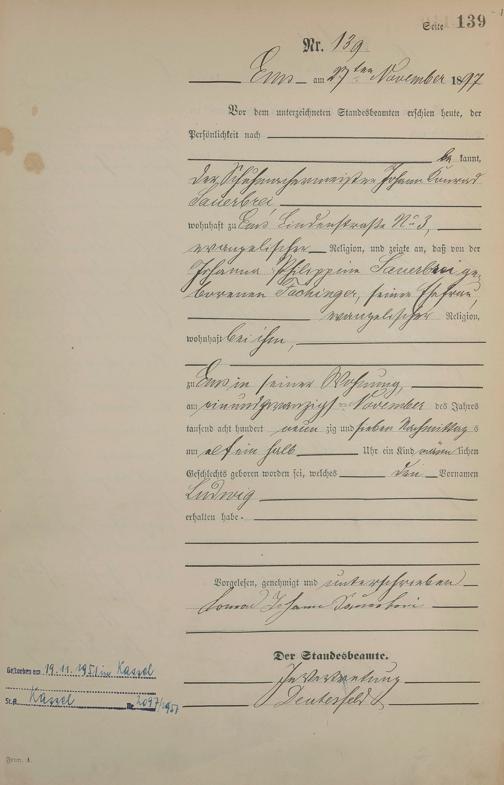 Seite 139
Nr. 139
Ems am 27ten November 1897
Vor dem unterzeichneten Standesbeamten erschien heute, der
Persönlichkeit nach
be kannt,
der Schuhmachermeister Johann Konrad
Sauerbrei
wohnhaft zu Ems Lindenstraße No 3,
evangelischer Religion, und zeigte an, daß von der
Johanna Philippine Sauerbrei ge
borenen, seiner Ehefrau,
evangelischer Religion,
wohnhaft bei ihm,
zu Ems in seiner Wohnung,
am einundzwanzigsten November des Jahres
tausend acht hundert neun zig und sieben Nachmittag s
um elf ein halb Uhr ein Kind männ lichen
Geschlechts geboren worden sei, welches den Vornamen
Ludwig
erhalten habe.
Vorgelesen, genehmigt und unterschrieben
Konrad Johann Sauerbrei
Der Standesbeamte.
In Vertretung
Gestorben am 19.11.1951 in Kassel
St.A. Kassel Nr. 2097/1951
Form. A.